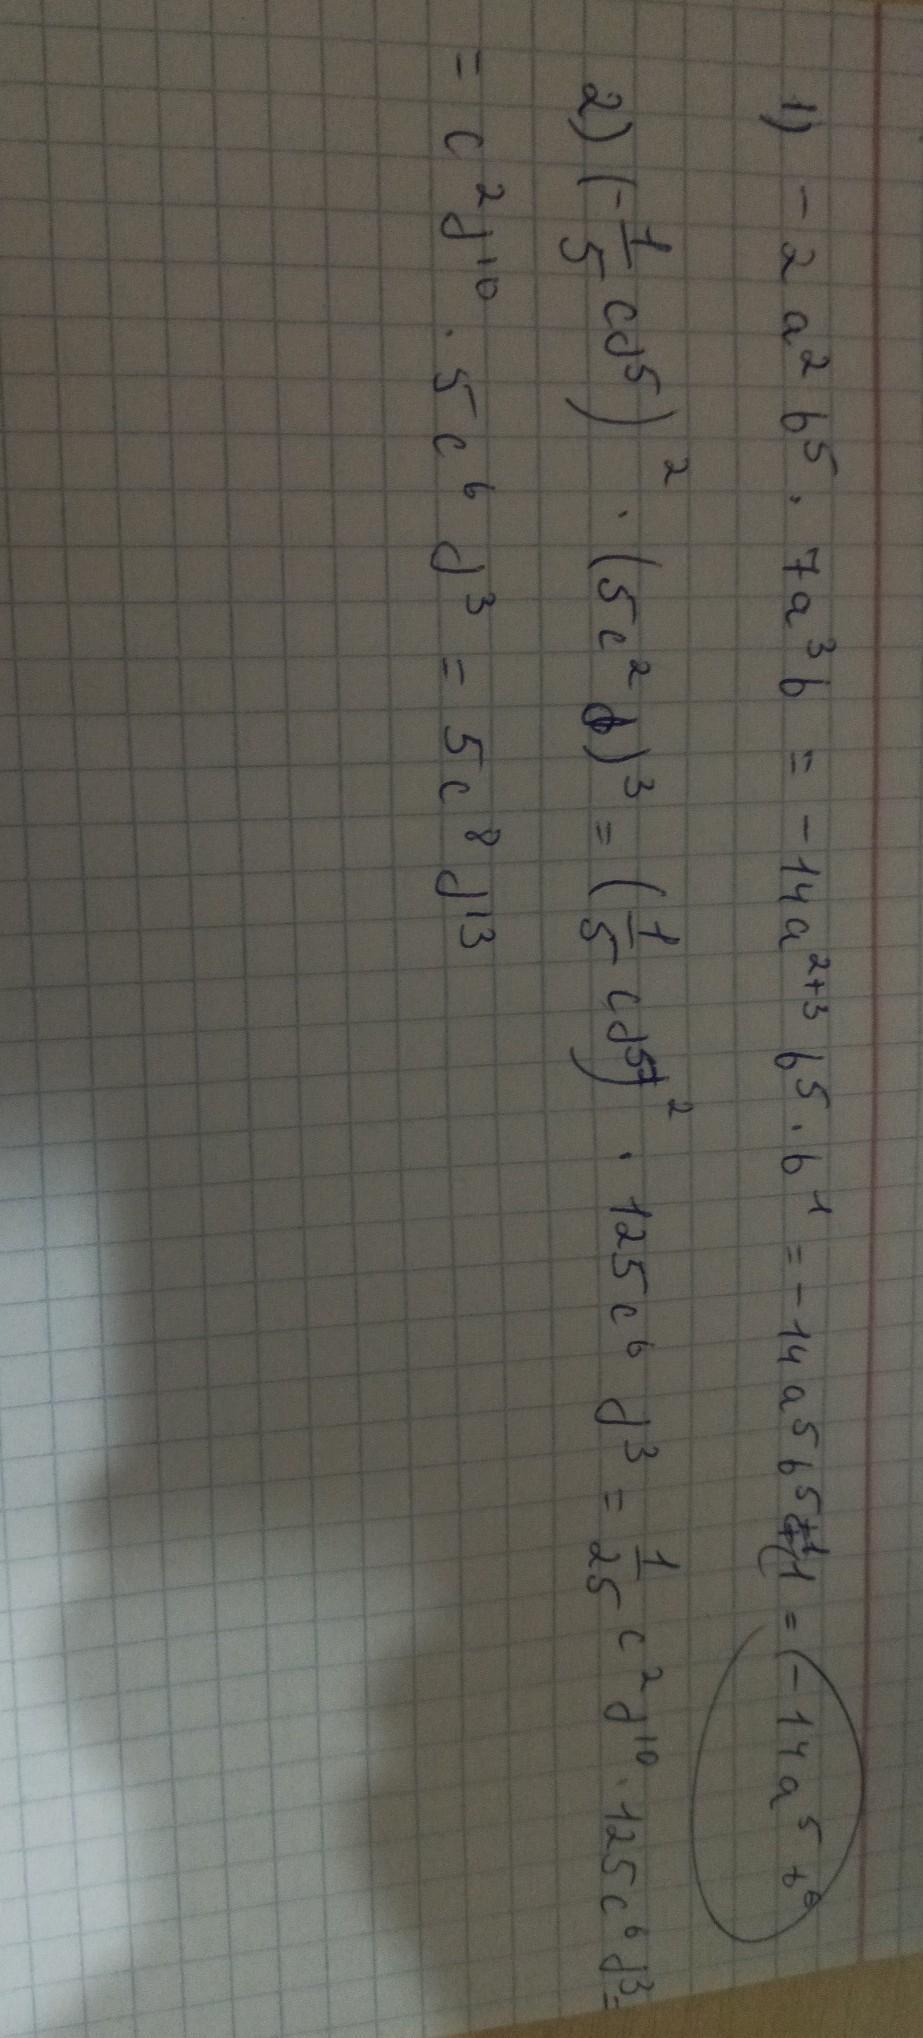 1) - 2a²b⁵ · 7a³b = -14a²⁺³ b⁵ · b¹ = -14a⁵b⁵⁺¹ = (-14a⁵b⁶
2) (-1/5 cd⁵)² · (5c²d)³ = (1/5 cd⁵)² · 125c⁶d³ = 1/25 c²d¹⁰ · 125c⁶d³ =
= c²d¹⁰ · 5c⁶d³ = 5c⁸d¹³